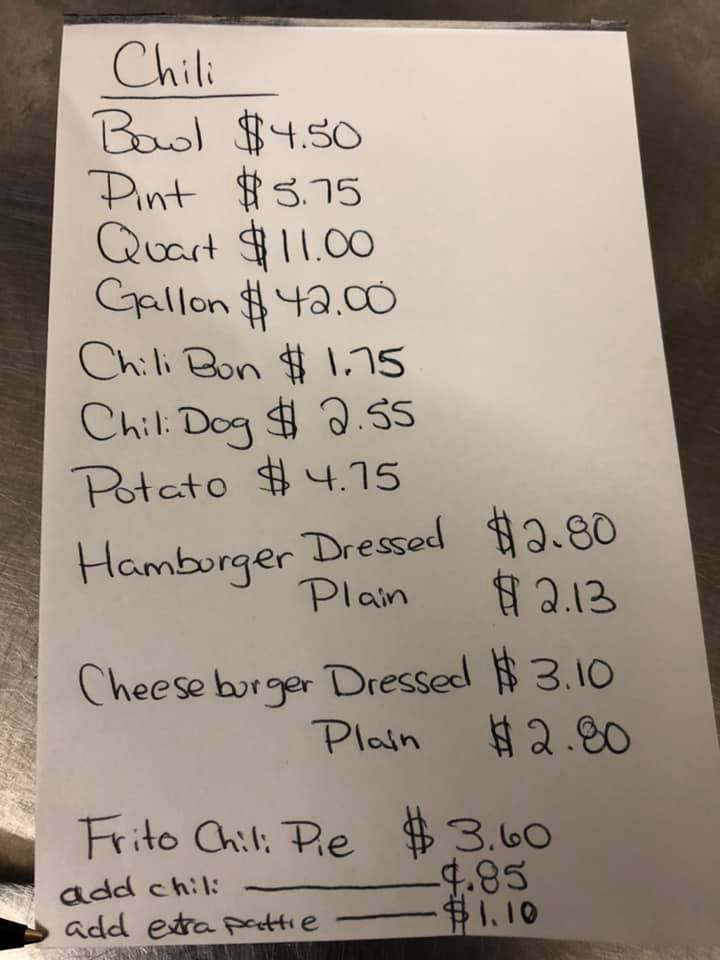 Chili
Bowl $4.50
Pint $5.75
Quart $11.00
Gallon $42.00
Chili Bun $1.75
Chili Dog $2.55
Potato $4.75
Hamburger Dressed $2.80
Plain $2.13
Cheeseburger Dressed $3.10
Plain $2.80
Frito Chili Pie $3.60
add chili ¢.85
add extra pattie $1.10